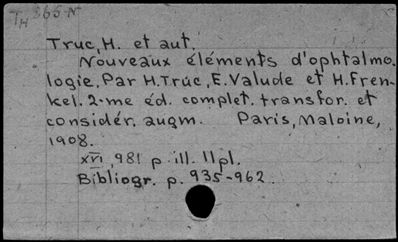 Tн 365-N
Truc, H. et aut.
Nouveaux éléments d'ophtalmo-
logie, Par H. Truc, E. Valude et H. Fren-
kel. 2-me éd. complet. transfor. et
considér. augm. Paris, Maloine,
1908.
XVI, 981 p. ill. 11 pl.
Bibliogr. p. 935-962